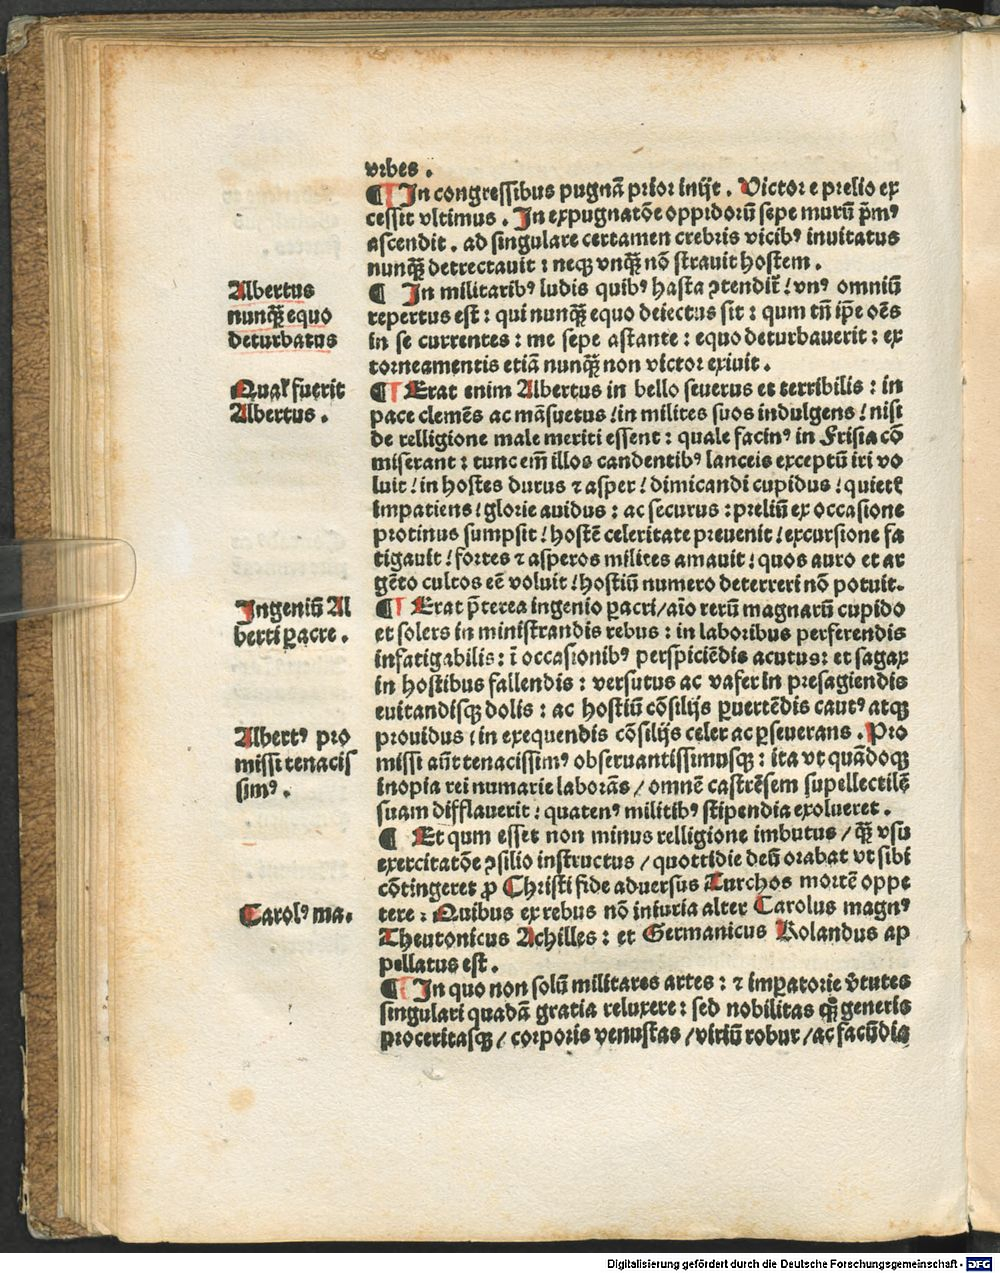 vrbes .
¶ In congressibus pugnā prior inijt . Victor e prelio ex
cessit vltimus . In expugnatōe oppidorū sepe murū p̄mꝰ
ascendit . ad singulare certamen crebris vicibꝰ inuitatus
nunq̄ꝫ detrectauit : neqꝫ vnq̄ꝫ nō strauit hostem .
Albertus
nunq̄ꝫ equo
deturbatus
¶ In militaribꝰ ludis quibꝰ hasta ꝯtendit̄ / vnꝰ omniū
repertus est : qui nunq̄ꝫ equo deiectus sit : qum tn̄ ip̄e oēs
in se currentes : me sepe astante : equo deturbauerit : ex
torneamentis etiā nunq̄ꝫ non victor exiuit .
Qual' fuerit
Albertus .
¶ Erat enim Albertus in bello seuerus et terribilis : in
pace clemēs ac māsuetus / in milites suos indulgens / nisi
de relligione male meriti essent : quale facinꝰ in Frisia cō
miserant : tunc em̄ illos candentibꝰ lanceis exceptū iri vo
luit / in hostes durus ⁊ asper / dimicandi cupidus / quietꝭ
impatiens / glorie auidus : ac securus : preliū ex occasione
protinus sumpsit / hostē celeritate preuenit / excursione fa
tigauit / fortes ⁊ asperos milites amauit / quos auro et ar
gēto cultos eē voluit / hostiū numero deterreri nō potuit .
Ingeniū Al
berti ꝑacre .
¶ Erat p̄terea ingenio ꝑacri / aīo rerū magnarū cupido
et solers in ministrandis rebus : in laboribus perferendis
infatigabilis : ī occasionibꝰ perspiciēdis acutus : et sagax
in hostibus fallendis : versutus ac vafer in presagiendis
euitandisqꝫ dolis : ac hostiū cōsilijs ꝑuertēdis cautꝰ atqꝫ
prouidus / in exequendis cōsilijs celer ac ꝑseuerans . Pro
Albertꝰ pro
missi tenacis
simꝰ .
missi aūt tenacissimꝰ obseruantissimusqꝫ : ita vt quādoqꝫ
inopia rei numarie laborās / omnē castrēsem supellectilē
suam difflauerit : quatenꝰ militibꝰ stipendia exolueret .
¶ Et qum esset non minus relligione imbutus / q̄ꝫ vsu
exercitatōe ꝯsilio instructus / quottidie deū orabat vt sibi
cōtingeret ꝓ Christi fide aduersus Turchos mortē oppe
Carolꝰ ma.
tere : Quibus ex rebus nō iniuria alter Carolus magnꝰ
Theutonicus Achilles : et Germanicus Rolandus ap
pellatus est .
¶ In quo non solū militares artes : ⁊ imꝑatorie v̄tutes
singulari quadā gratia reluxere : sed nobilitas generis
proceritasqꝫ / corporis venustas / viriū robur / ac facūdia
Digitalisierung gefördert durch die Deutsche Forschungsgemeinschaft - DFG